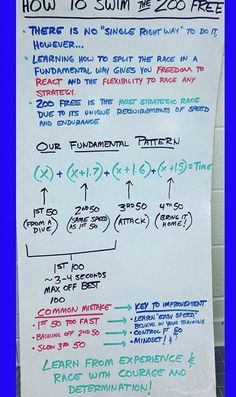 HOW TO SWIM THE 200 FREE
• THERE IS NO "SINGLE RIGHT WAY" TO DO IT,
HOWEVER...
• LEARNING HOW TO SPLIT THE RACE IN A
FUNDAMENTAL WAY GIVES YOU FREEDOM TO
REACT AND THE FLEXIBILITY TO RACE ANY
STRATEGY.
• 200 FREE IS THE MOST STRATEGIC RACE
DUE TO ITS UNIQUE REQUIREMENTS OF SPEED
AND ENDURANCE.
OUR FUNDAMENTAL PATTERN
(X) + (X+1.7) + (X+1.6) + (X+1.5) = TIME
1ST 50 2ND 50 3RD 50 4TH 50
(FROM A DIVE) (SAME SPEED AS 1ST 50) (ATTACK) (BRING IT HOME!)
1ST 100
~3-4 SECONDS
MAX OFF BEST
100
COMMON MISTAKE → KEY TO IMPROVEMENT
• 1ST 50 TOO FAST → • LEARN "EASY SPEED," BELIEVE IN YOUR TRAINING
• BACKING OFF 2ND 50 → • CONTROL IT
• SLOW 3RD 50 → • MINDSET!
LEARN FROM EXPERIENCE &
RACE WITH COURAGE AND
DETERMINATION!